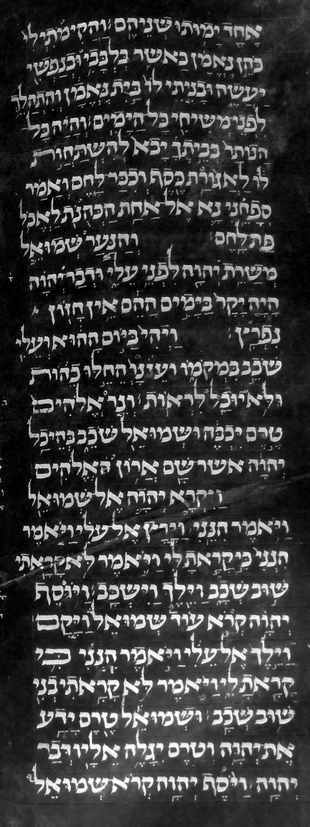 אחד ימותו שניהם והקימתי לי
כהן נאמן כאשר בלבבי ובנפשי
יעשה ובניתי לו בית נאמן והתהלך
לפני משיחי כל הימים והיה כל
הנותר בביתך יבא להשתחות
לו לאגורת כסף וככר לחם ואמר
ספחני נא אל אחת הכהנת לאכל
פת לחם והנער שמואל
משרת יהוה לפני עלי ודבר יהוה
היה יקר בימים ההם אין חזון
נפרץ ויהי ביום ההוא ועלי
שכב במקמו ועינו החלו כהות
ולא יוכל לראות ונר אלהים
טרם יכבה ושמואל שכב בהיכל
יהוה אשר שם ארון האלהים
ויקרא יהוה אל שמואל
ויאמר הנני וירץ אל עלי ויאמר
הנני כי קראת לי ויאמר לא קראתי
שוב שכב וילך וישכב ויסף
יהוה קרא עוד שמואל ויקם
וילך אל עלי ויאמר הנני כי
קראת לי ויאמר לא קראתי בני
שוב שכב ושמואל טרם ידע
את יהוה וטרם יגלה אליו דבר
יהוה ויסף יהוה קרא שמואל